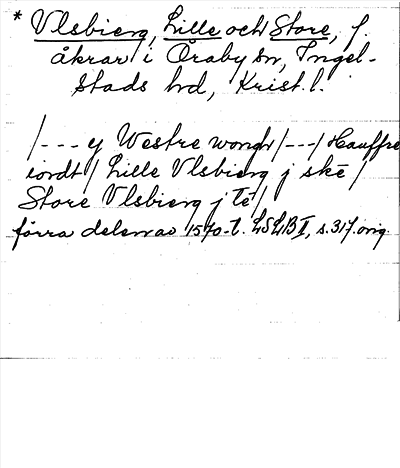 * Vlsbierg, Lille och Store, f.
åkrar i Öraby sn, Ingel-
stads hd, Krist. l.
/--- y Westre wongh /---/ Hauffre
iordt / Lille Vlsbierg j ske /
Store Vlsbierg j te /
förra delen av 1570-t. LSLB I, s. 317. orig.